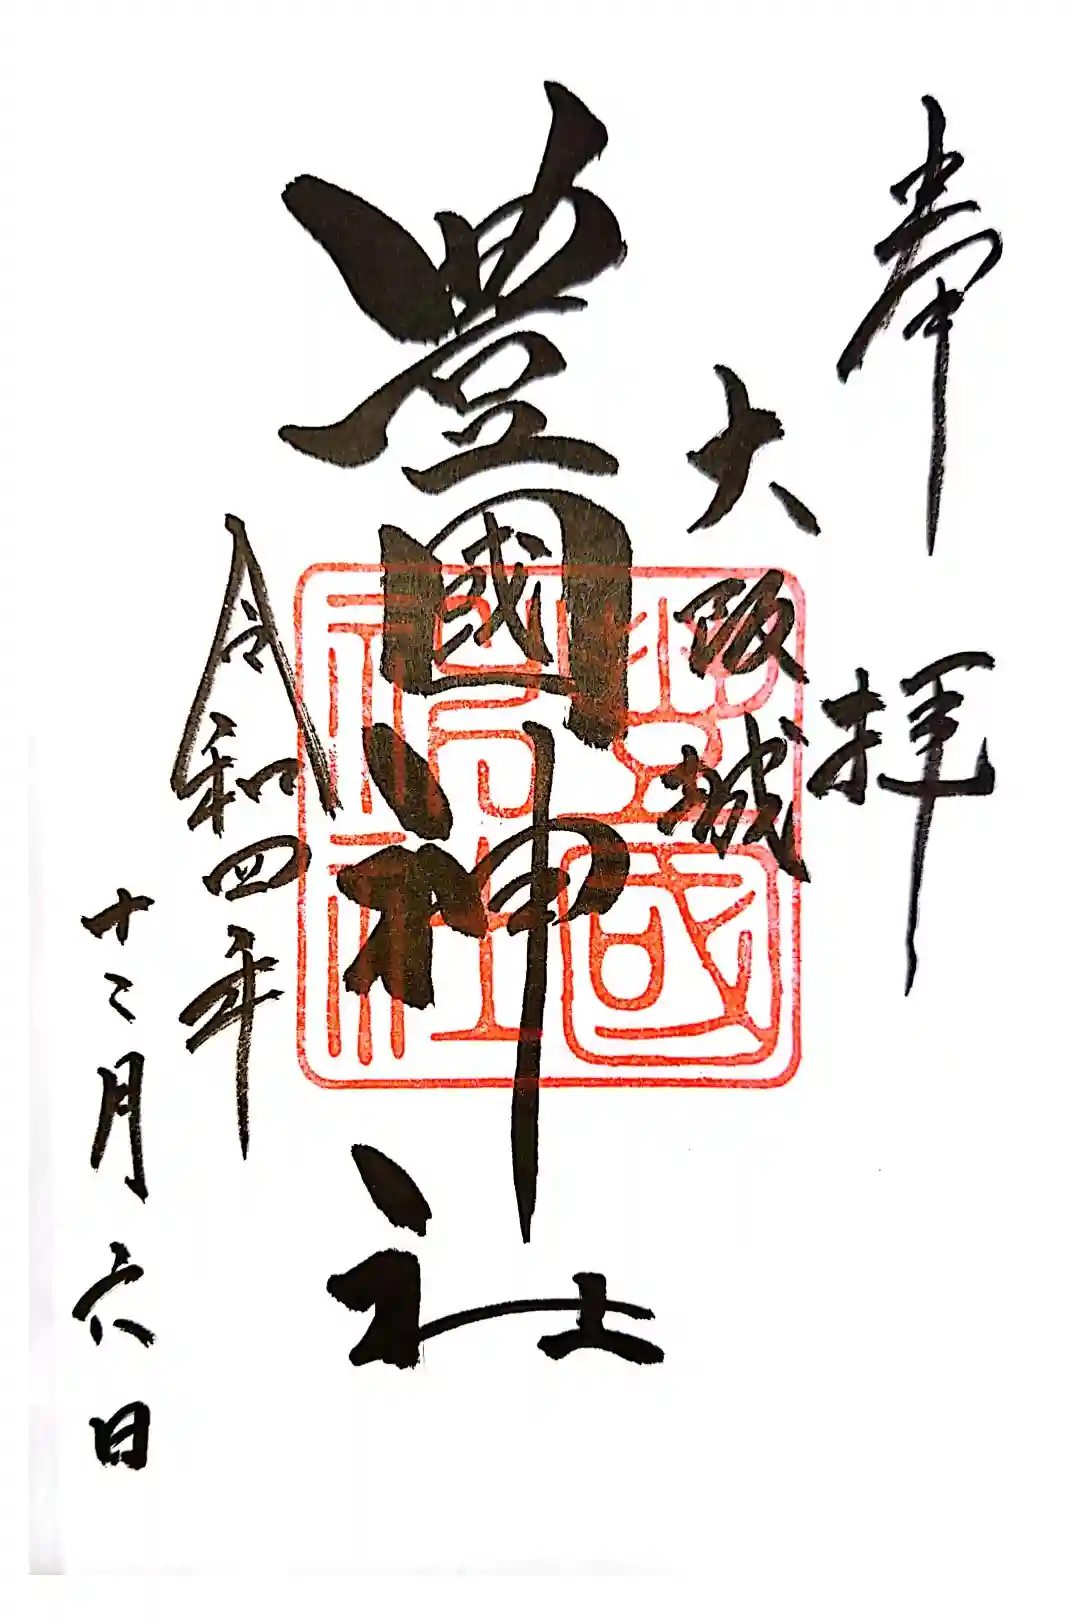 奉拝
大阪城
豊國神社
豊國神社
令和四年
十二月六日